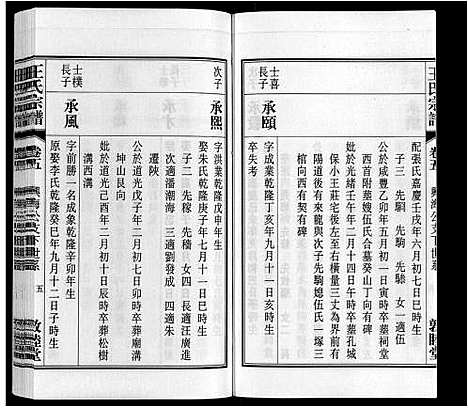 王氏宗譜
卷五
敦睦堂
配張氏嘉慶壬戌年六月初七日辰時生
子三 先騆 先駒 先騬 女一適伍
公於咸豐乙卯年五月初一日寅時卒墓祠堂
份西首附墓嫂伍氏合墓癸山丁向有碑
妣於光緒壬午年二月十四日午時卒墓孔城
保小王莊宅後左至右橫量三丈為界前有
陽道後有來坎與次子先駒媳伍氏一塚三
棺向西有契有碑
士喜
長子 承頤
字成業乾隆丁亥年九月十一日亥時生
卒失考
次子 承熙
字洪業乾隆戊申年生
娶朱氏乾隆庚子年七月十一日巳時生
子二 先稼 先穡 女四長適汪廣進
次適潘潮海 三適劉發成 四適朱
遷陝
公於道光丁酉年二月初七日時卒葬廟溝
坤山艮向
妣於道光己酉年二月初十日辰時卒葬松樹
溝西溝
士樸
長子 承風
字前勝一名成象乾隆辛卯年生
原娶李氏乾隆癸巳年九月十一日子時生
王氏宗譜
卷五
五
敦睦堂